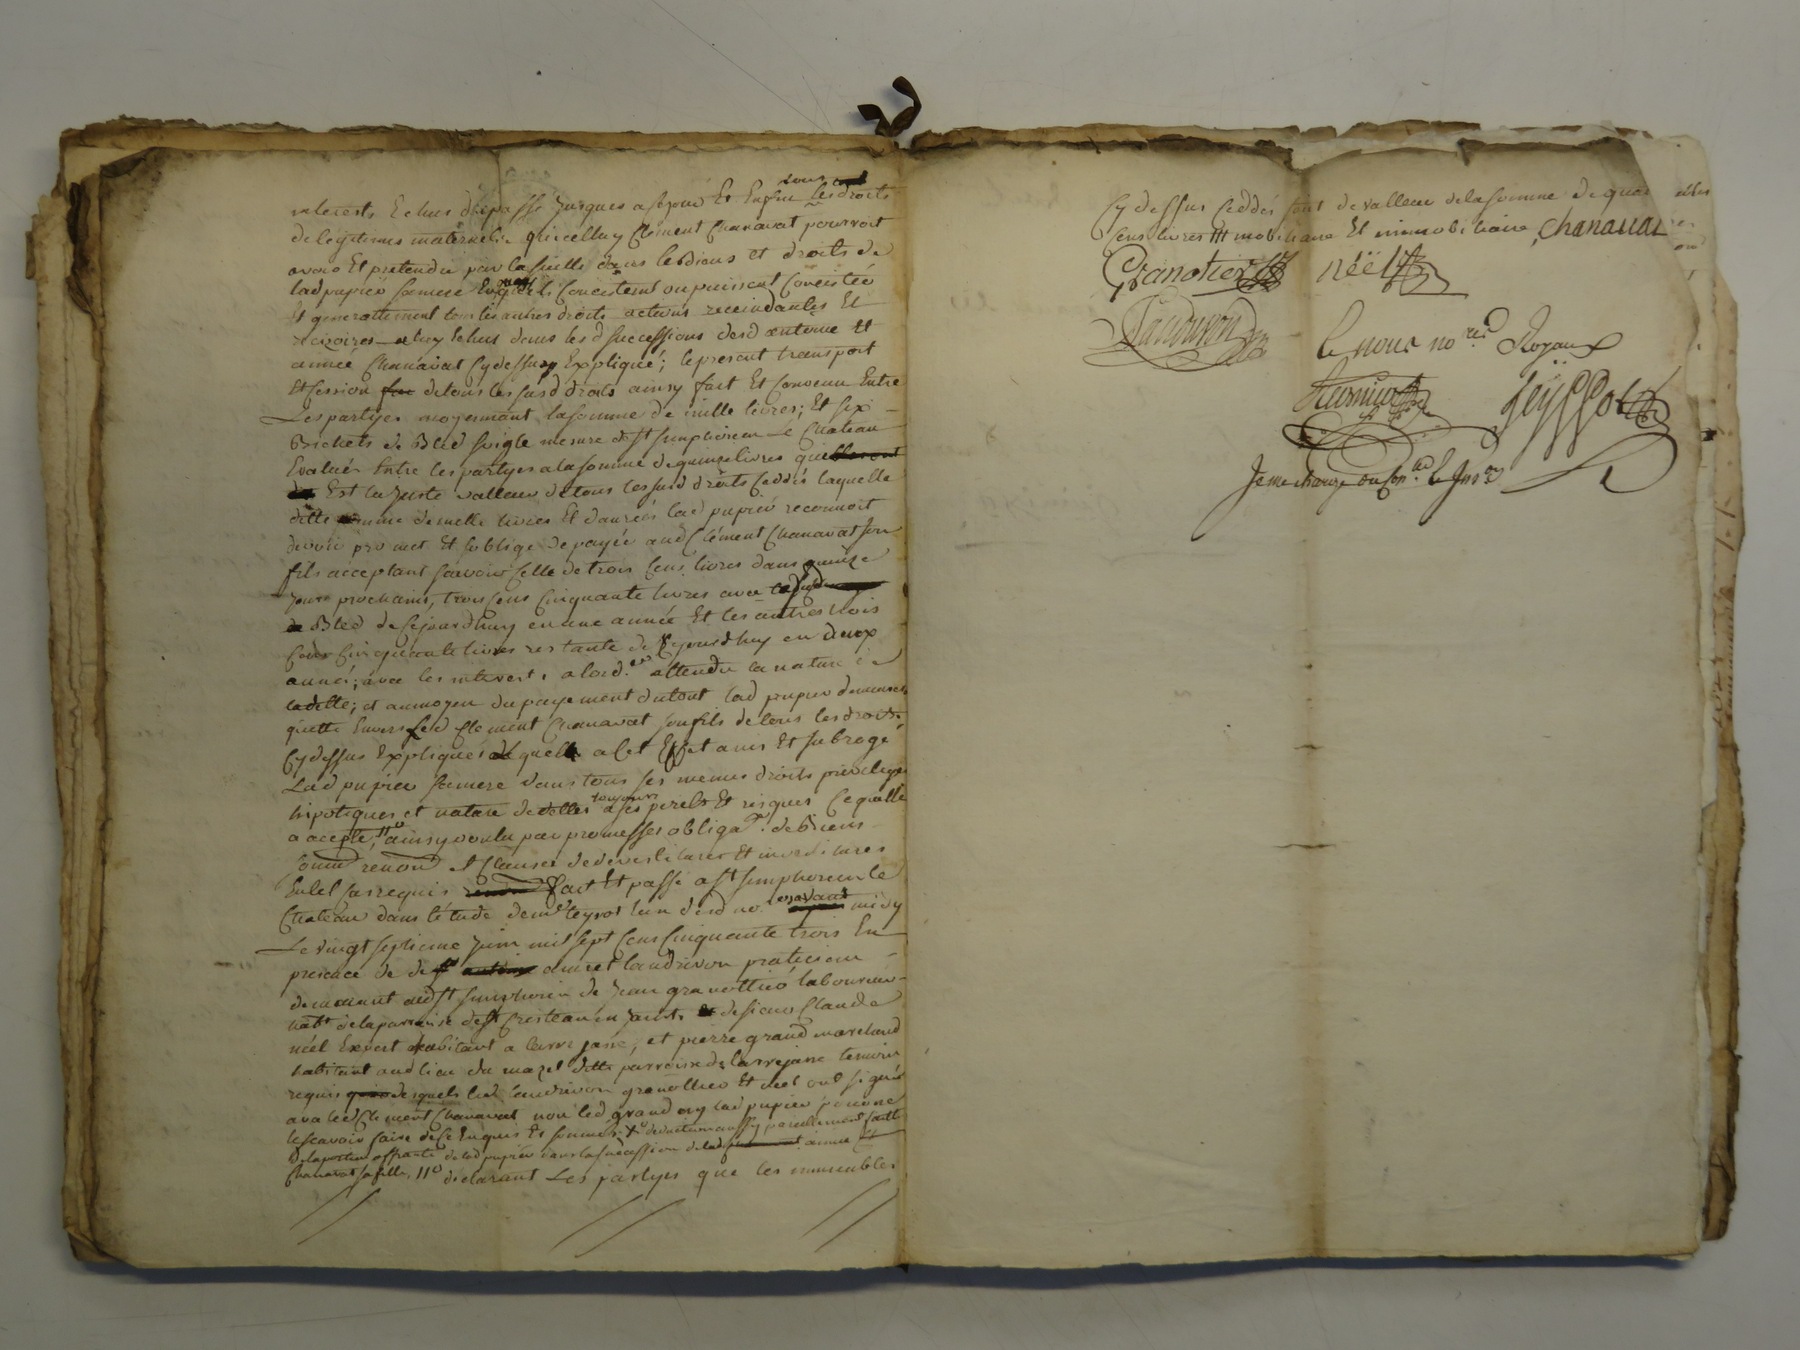 interests Echus du passé Jusques a ce jour Et Enfin tous les droits
de legitime maternelle qu'icelluy Clement Chanavat pourroit
avoir Et pretendre par la suitte dans les biens et droits de
lad pupier sa mere En quoy ils Concistent ou puissent Concister
Et generallement tous les autres droits actions rescindantes Et
rezoires a luy Echus dans les d successions desd antoine Et
aimée Chanavat Cy dessus Expliqué; le present transport
Et Cession de tous les susd droits ainsy fait Et Convenu Entre
Les partyes moyennant la somme de mille livres; Et six
Bichets de Bled seigle mesure de St simphorien Le Chateau
Evalués Entre les partyes a la somme de quinze livres qui
Est la Juste valleur de tous les susd droits Ceddés laquelle
ditte somme de mille livres Et danrées lad pupier reconnoit
devoir promet Et s'oblige de payer aud Clément Chanavat son
fils acceptant scavoir Celle de trois Cens livres dans quinze
Jours prochains, trois Cens Cinquante livres avec
Bled de Cejourdhuy en une année Et les autres trois
Cens Cinquante livres restante de Cejourdhuy en deux
année; avec les interest a lord.re attendu la nature de
la dette; et au moyen du payement du tout lad pupier demeure
quitte Envers led Clement Chanavat son fils de tous les droits
Cy dessus Expliqués a Cet Effet a mis Et subrogé
Lad pupier sa mere dans tous ses memes droits privileges
hipotiques et nature de dettes toujours a ses perils Et risques Ce qu'elle
a accepté, 11° ainsy voulu par promesses obliga.on de Biens
soum renon Et Clauses de devestitures Et investitures
En tel Cas requis fait Et passé a St simphorien le
Chateau dans l'étude de me teyssot l'un desd no. avant midy
Le vingt septieme Juin mil sept Cens Cinquante trois En
presence de aimet landrivon praticien
demeurant aud St simphorien de Jean granottier laboureur
habt de la parroisse de St Cristeau en Jaurest de sieur Claude
néel Expert habitant a Larrejasse, et pierre grand marchand
habitant aud lieu du mazel ditte parroisse de larrejasse temoins
requis desquels led landrivon granottier Et néel ont signés
avec led Clement Chanavat non led grand ny lad pupier pour ne
le scavoir faire de Ce Enquis Et sommés X° deduction aussy pareillement faitte
De la portion afferante de lad pupier dans la succession de lad aimée
Chanavat sa fille, 11° declarant Les partyes que les immeubles
Cy dessus Ceddés sont de valleur de la somme de quatre
Cens livres mobiliaire Et immobiliaire, Chanauat
Granotier néel
Landrivon
Et nous no.res Royaux
teyssot